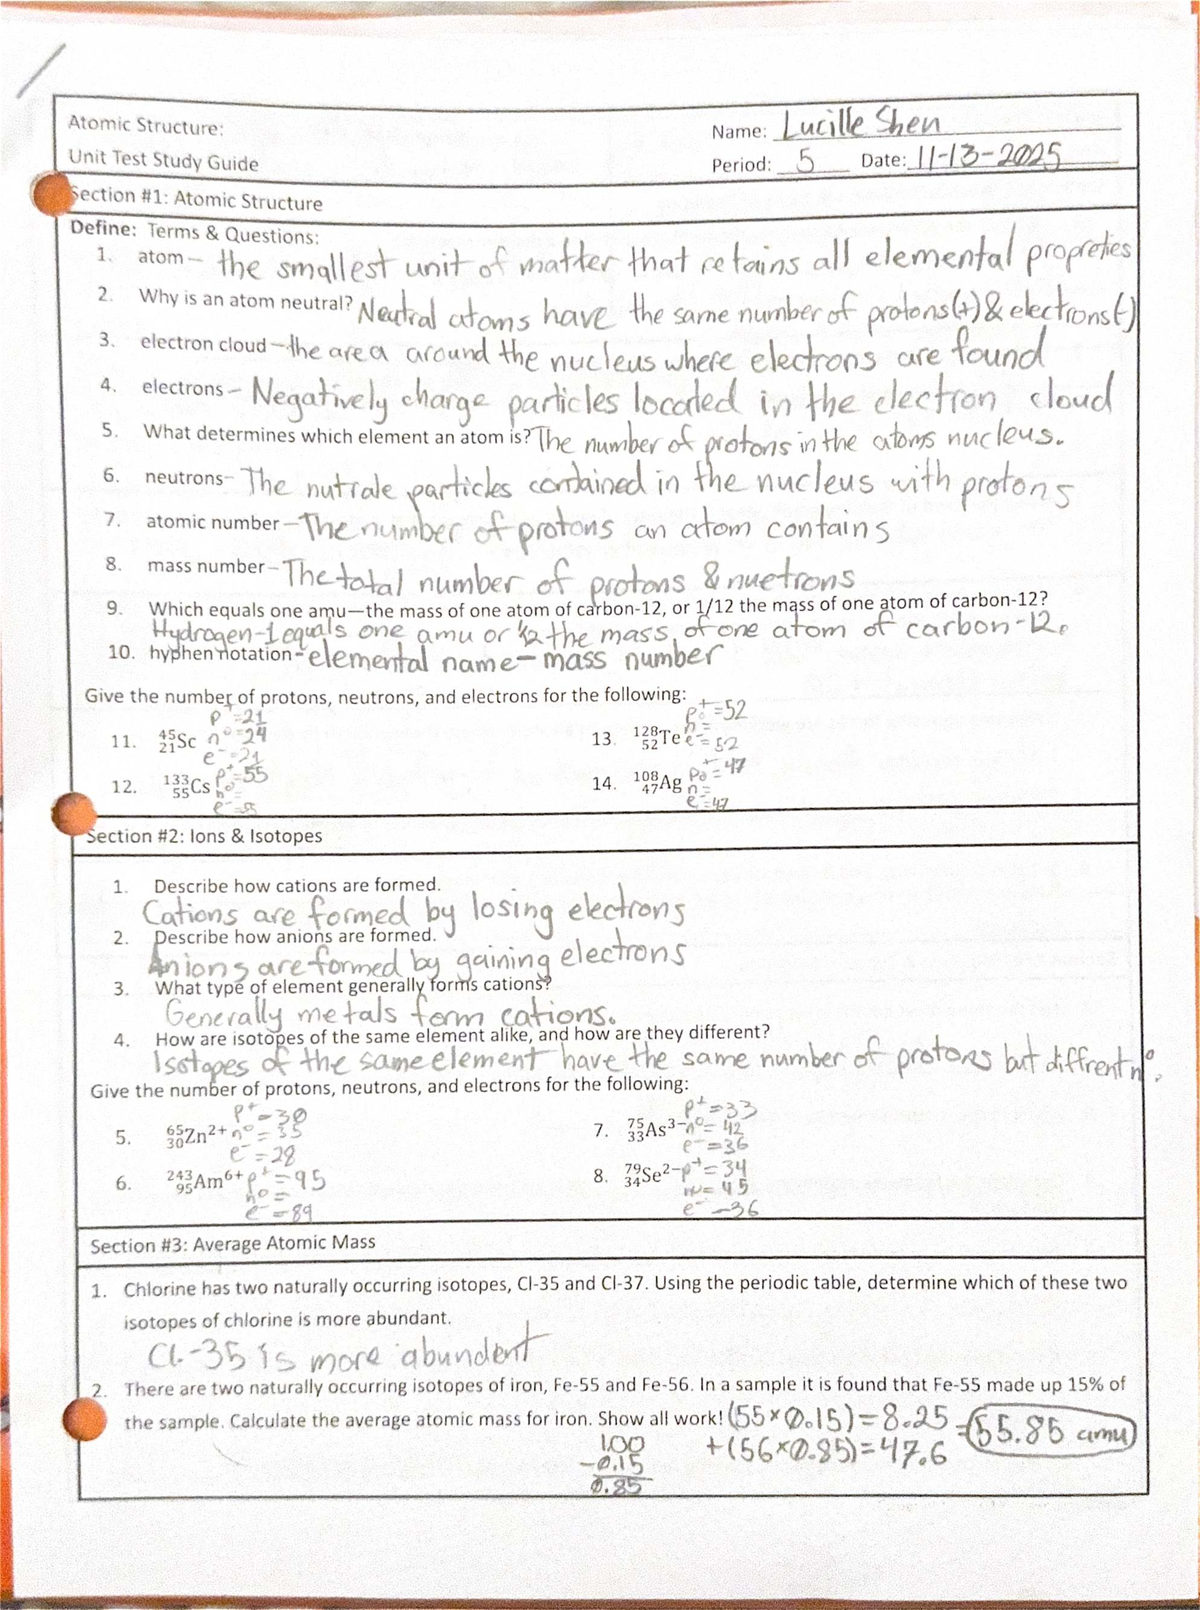 Atomic Structure:
Name: Lucille Shen
Unit Test Study Guide
Period: 5 Date: 11-13-2025
Section #1: Atomic Structure
Define: Terms & Questions:
1. atom – the smallest unit of matter that retains all elemental propreties
2. Why is an atom neutral? Neutral atoms have the same number of protons(+) & electrons(-)
3. electron cloud – the area around the nucleus where electrons are found
4. electrons – Negatively charge particles located in the electron cloud
5. What determines which element an atom is? The number of protons in the atoms nucleus.
6. neutrons- The nutrale particles contained in the nucleus with protons
7. atomic number – The number of protons an atom contains
8. mass number – The total number of protons & nuetrons
9. Which equals one amu—the mass of one atom of carbon-12, or 1/12 the mass of one atom of carbon-12?
Hydrogen-1 equals one amu or 1/2 the mass of one atom of carbon-12.
10. hyphen notation - elemental name – mass number
Give the number of protons, neutrons, and electrons for the following:
11. ⁴⁵₂₁Sc p⁺=21
n⁰=24
e⁻=21
13. ¹²⁸₅₂Te p⁺=52
n⁰=
e⁻=52
12. ¹³³₅₅Cs p⁺=55
n⁰=
e⁻=55
14. ¹⁰⁸₄₇Ag p⁺=47
n⁰=
e⁻=47
Section #2: Ions & Isotopes
1. Describe how cations are formed.
Cations are formed by losing electrons
2. Describe how anions are formed.
Anions are formed by gaining electrons
3. What type of element generally forms cations?
Generally metals form cations.
4. How are isotopes of the same element alike, and how are they different?
Isotopes of the same element have the same number of protons but diffrent n⁰.
Give the number of protons, neutrons, and electrons for the following:
5. ⁶⁵₃₀Zn²⁺ p⁺=30
n⁰=35
e⁻=28
7. ⁷⁵₃₃As³⁻ p⁺=33
n⁰=42
e⁻=36
6. ²⁴³₉₅Am⁶⁺ p⁺=95
n⁰=
e⁻=89
8. ⁷⁹₃₄Se²⁻ p⁺=34
n⁰=45
e⁻=36
Section #3: Average Atomic Mass
1. Chlorine has two naturally occurring isotopes, Cl-35 and Cl-37. Using the periodic table, determine which of these two
isotopes of chlorine is more abundant.
Cl-35 is more abundent
2. There are two naturally occurring isotopes of iron, Fe-55 and Fe-56. In a sample it is found that Fe-55 made up 15% of
the sample. Calculate the average atomic mass for iron. Show all work! (55×0.15)=8.25 = 55.85 amu
+(56×0.85)=47.6
1.00
-0.15
0.85